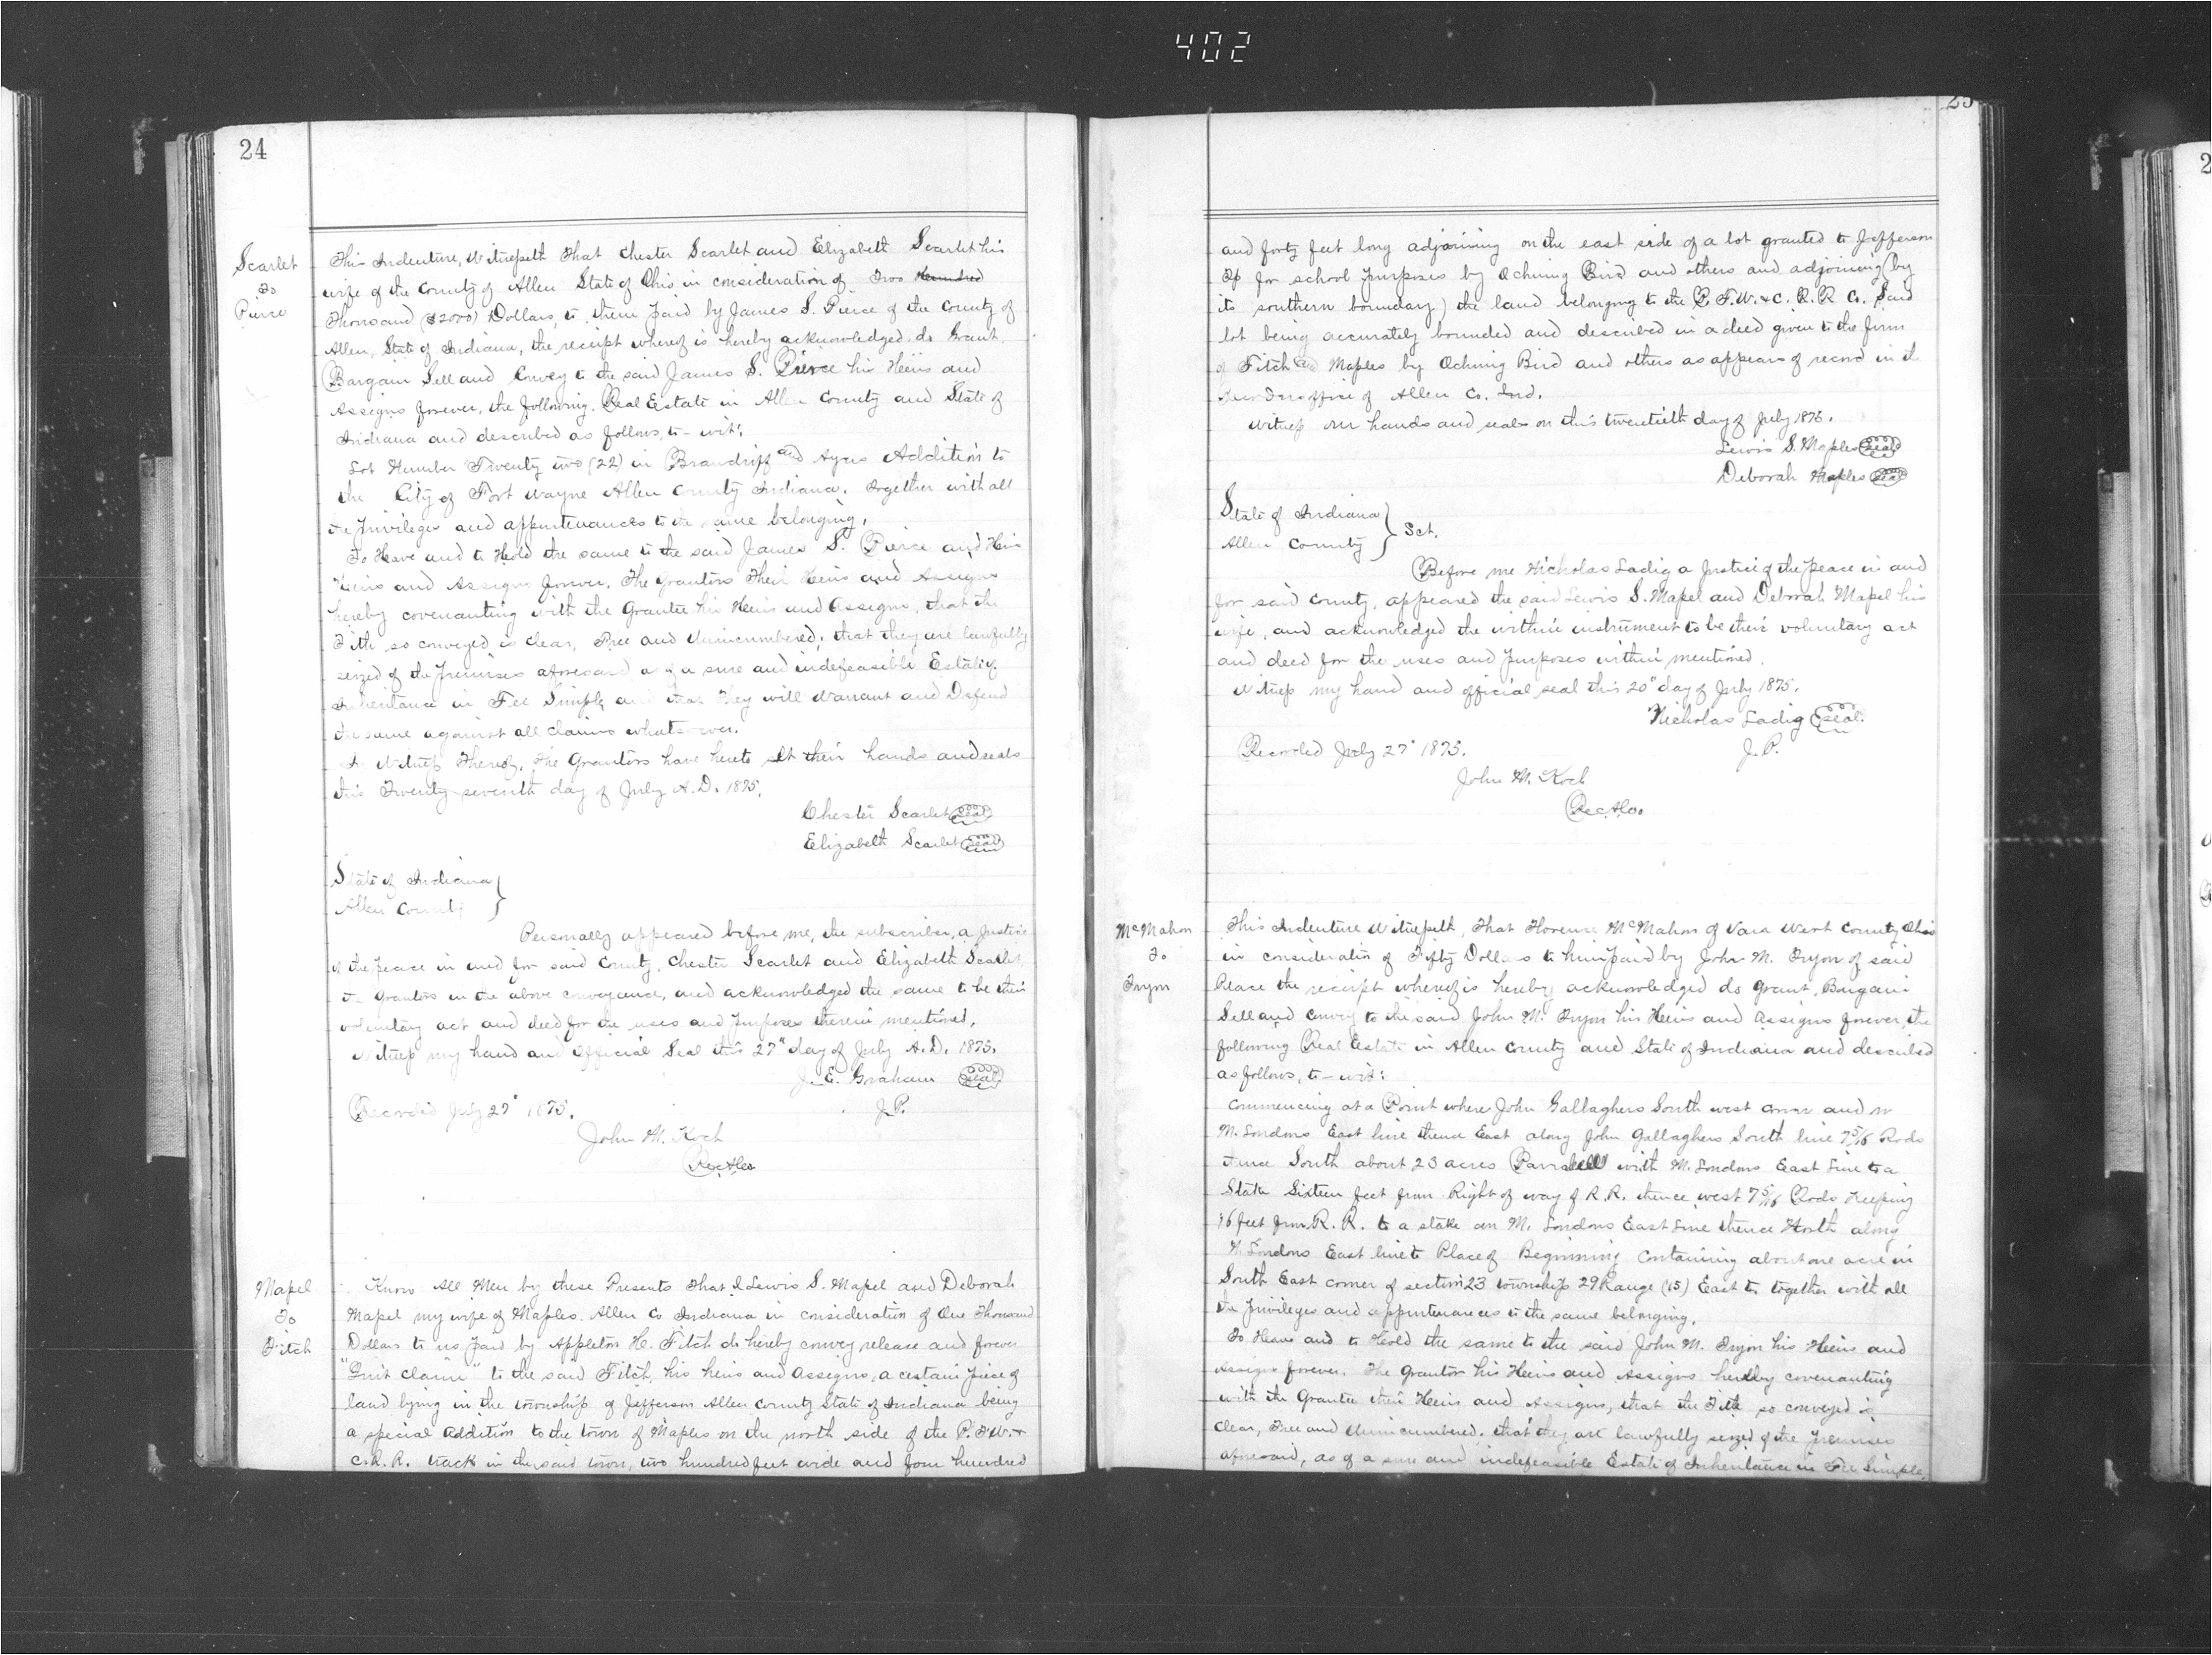 402
24
Scarlet
To
Pierce
This Indenture, Witnesseth That Chester Scarlet and Elizabeth Scarlet his
wife of the County of Allen State of Ohio in consideration of Two Hundred
Thousand ($2000) Dollars, to them paid by James S. Pierce of the County of
Allen, State of Indiana, the receipt whereof is hereby acknowledged do Grant
Bargain Sell and Convey to the said James S. Pierce his Heirs and
Assigns forever, the following Real Estate in Allen County and State of
Indiana and described as follows, to-wit:
Lot Number Twenty two (22) in Brandriff and Ayres Addition to
the City of Fort Wayne Allen County Indiana. Together with all
the privileges and appurtenances to the same belonging.
To Have and to Hold the same to the said James S. Pierce and His
Heirs and Assigns forever. The Grantors Their Heirs and Assigns
hereby covenanting with the Grantee his Heirs and Assigns, that the
Title so conveyed is clear, Free and Unincumbered; that they are lawfully
seized of the premises aforesaid as of a sure and indefeasible Estate of
Inheritance in Fee Simple and that they will Warrant and Defend
the same against all claims whatsoever.
In Witness Thereof, the Grantors have hereto set their hands and seals
this Twenty seventh day of July A.D. 1875.
Chester Scarlet seal
Elizabeth Scarlet seal
State of Indiana
Allen County
Personally appeared before me, the subscriber, a Justice
of the peace in and for said County, Chester Scarlet and Elizabeth Scarlet
the Grantors in the above conveyance, and acknowledged the same to be their
voluntary act and deed for the uses and purposes therein mentioned.
Witness my hand and Official Seal this 27" day of July A.D. 1875.
J. E. Graham seal
J.P.
Recorded July 27" 1875.
John M. Koch
Rec
Mapel
To
Fitch
Know All Men by these Presents That I Lewis S. Mapel and Deborah
Mapel my wife of Maples Allen Co Indiana in consideration of One Thousand
Dollars to us paid by Appleton H. Fitch do hereby convey release and forever
"Quit claim" to the said Fitch, his heirs and Assigns, a certain piece of
land lying in the township of Jefferson Allen County State of Indiana being
a special Addition to the town of Maples on the north side of the P. F.W. &
C.R.R. track in the said town, two hundred feet wide and four hundred
25
and forty feet long adjoining on the east side of a lot granted to Jefferson
Tp for school purposes by Ochming Bird and others and adjoining (by
its southern boundary) the land belonging to the P. F.W. & C. R.R Co. Said
lot being accurately bounded and described in a deed given to the firm
of Fitch and Maples by Ochming Bird and others as appears of record in the
Recorders office of Allen Co. Ind.
Witness our hands and seals on this twentieth day of July 1875.
Lewis S. Maples seal
Deborah Maples seal
State of Indiana
Allen County
Sct.
Before me Nicholas Ladig a Justice of the peace in and
for said County, appeared the said Lewis S. Mapel and Deborah Mapel his
wife, and acknowledged the within instrument to be their voluntary act
and deed for the uses and purposes within mentioned.
Witness my hand and official seal this 20" day of July 1875.
Nicholas Ladig seal
J.P.
Recorded July 27" 1875.
John M. Koch
Rec
McMahon
To
Tryon
This Indenture Witnesseth, That Florence McMahon of Van Wert County Ohio
in consideration of Fifty Dollars to him paid by John M. Tryon of said
Place the receipt whereof is hereby acknowledged do Grant, Bargain
Sell and Convey to the said John M. Tryon his Heirs and Assigns forever, the
following Real Estate in Allen County and State of Indiana and described
as follows, to-wit:
Commencing at a Point where John Gallaghers South west corner and
M. Londons East line thence East along John Gallaghers South line 7 5/16 Rods
thence South about 23 acres Parralell with M. Londons East Line to a
Stake Sixteen feet from Right of way of R.R. thence west 7 5/16 Rods Keeping
16 feet from R. R. to a stake on M. Londons East Line thence North along
M. Londons East line to Place of Beginning Containing about one acre in
South East corner of section 23 township 29 Range (15) East to together with all
the privileges and appurtenances to the same belonging.
To Have and to Hold the same to the said John M. Tryon his Heirs and
Assigns forever. The Grantor his Heirs and Assigns hereby covenanting
with the Grantee their Heirs and Assigns, that the Title so conveyed is
Clear, Free and Unincumbered; that they are lawfully seized of the premises
aforesaid, as of a sure and indefeasible Estate of Inheritance in Fee Simple,